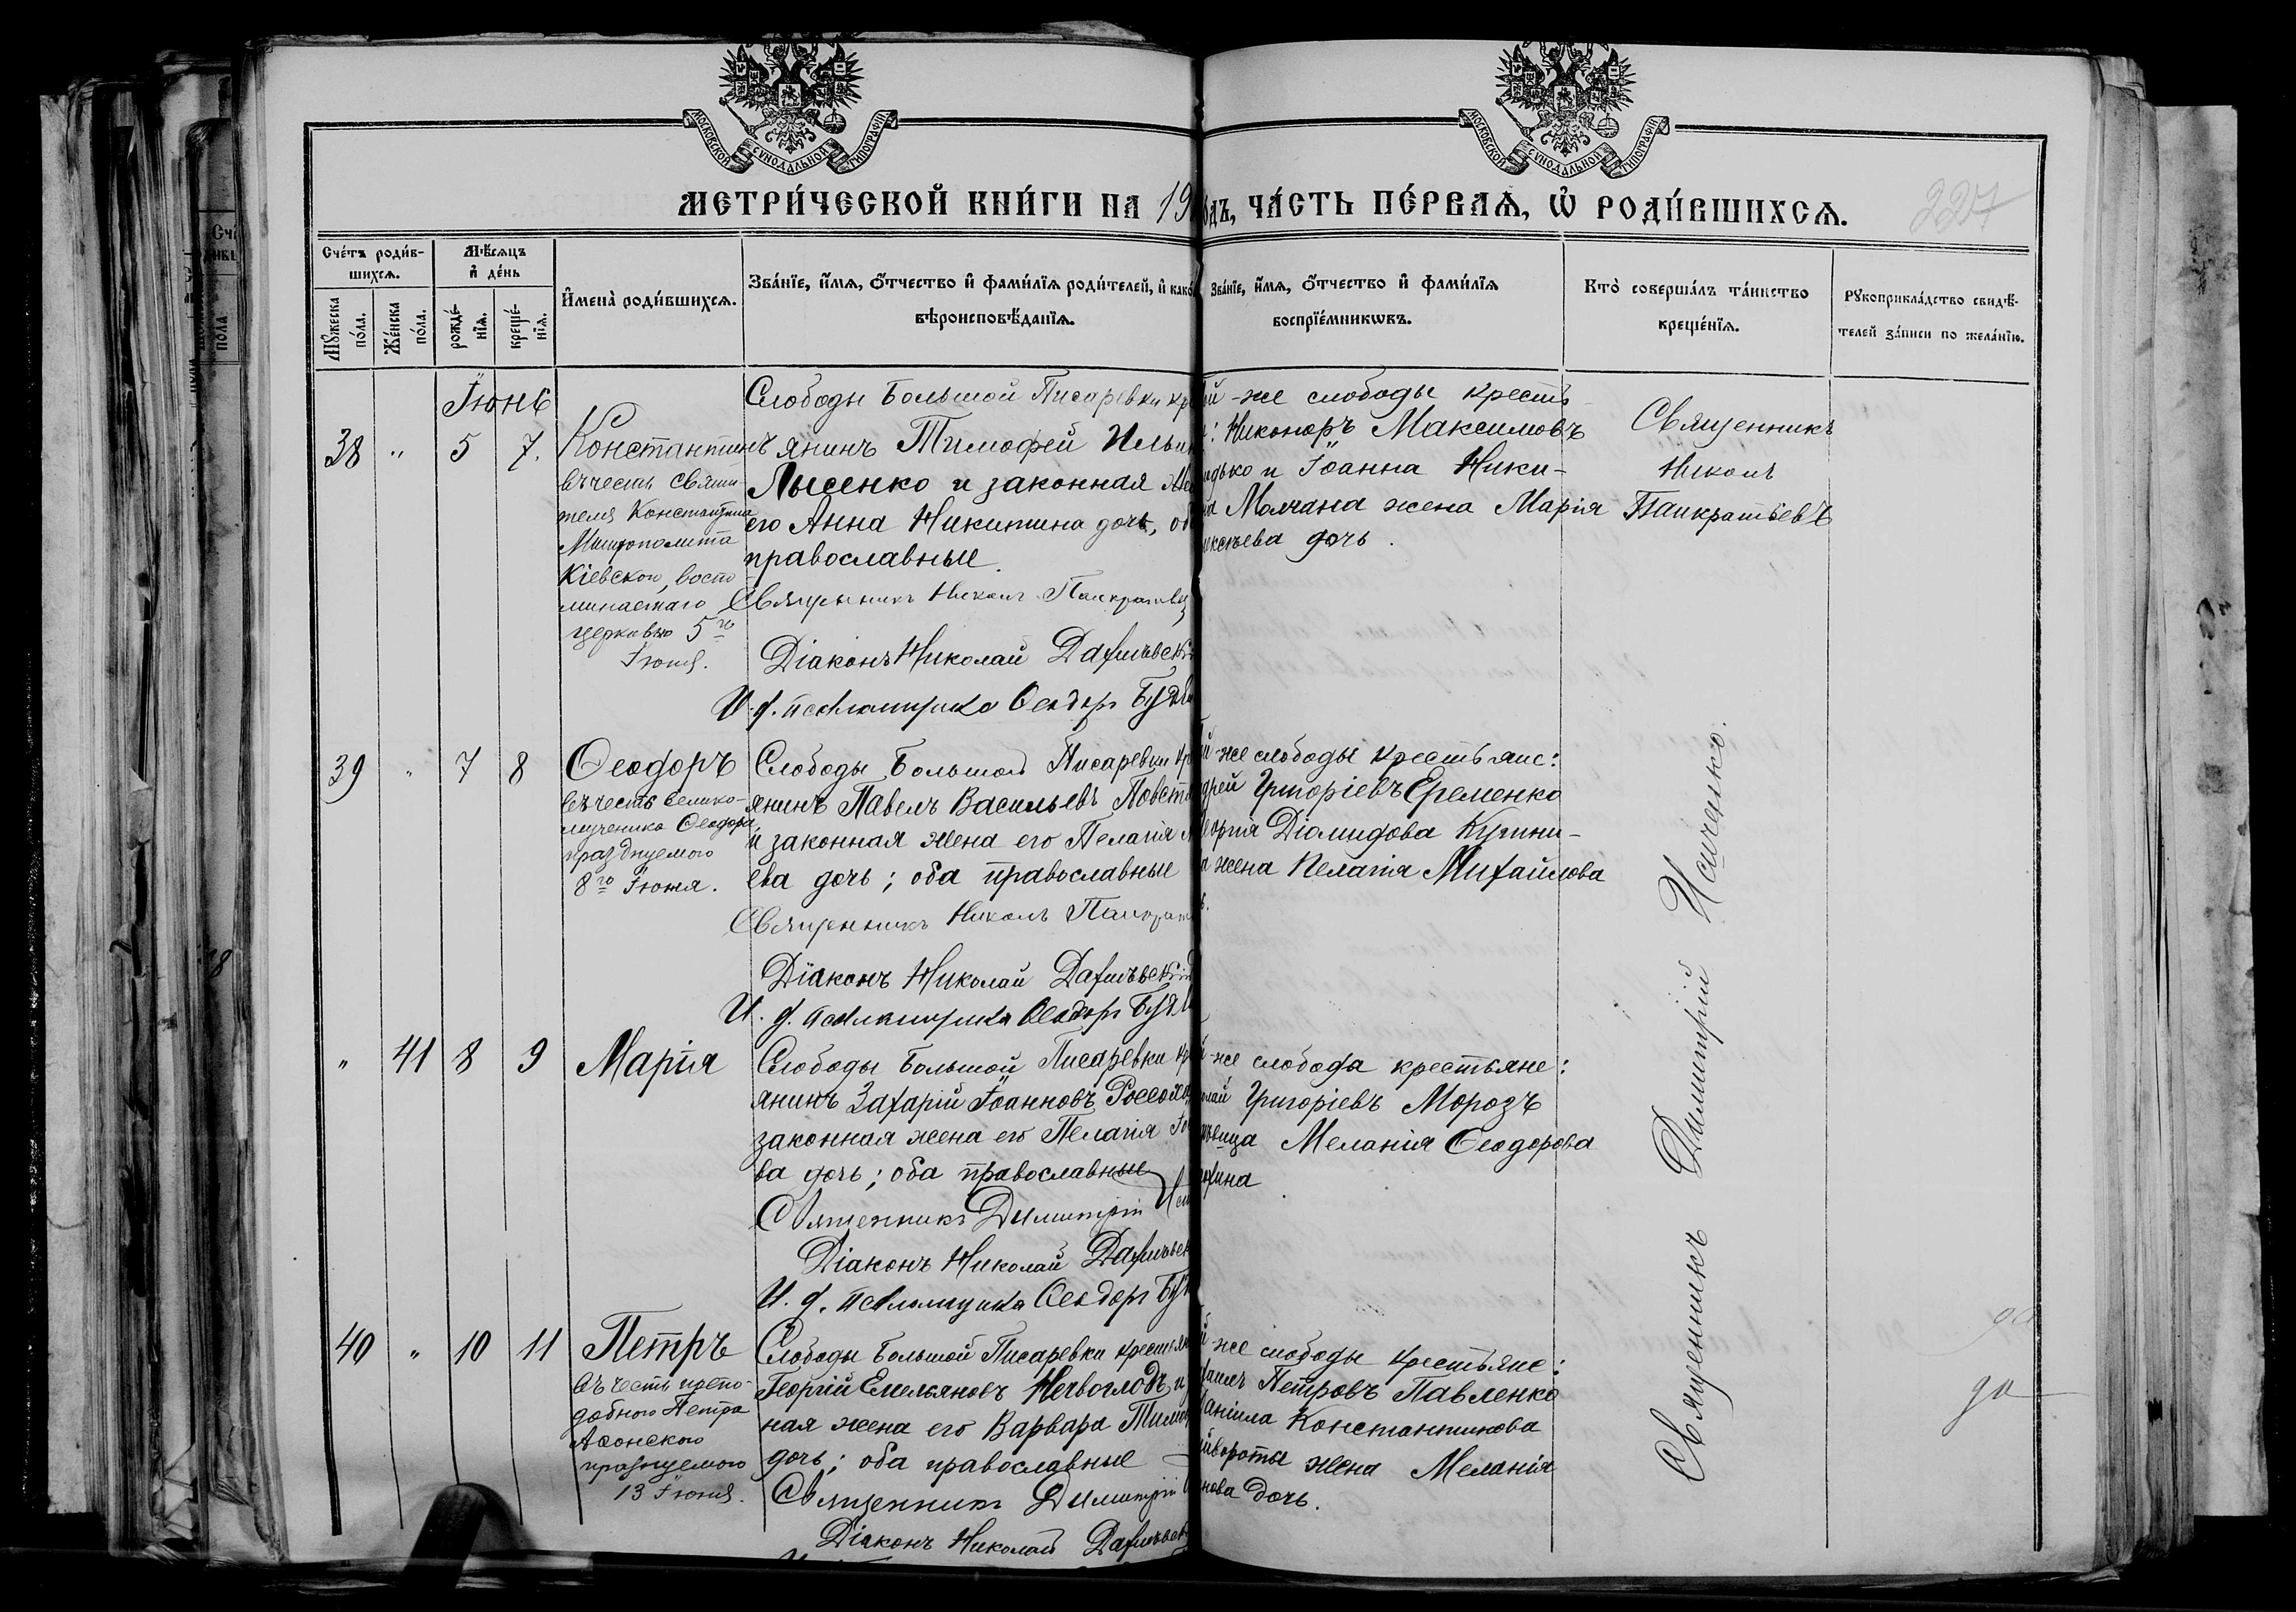 МОСКОВСКОЙ СѴНОДАЛЬНОЙ ТИПОГРАФІИ
МОСКОВСКОЙ СѴНОДАЛЬНОЙ ТИПОГРАФІИ
МЕТРИ́ЧЕСКОЙ КНИ́ГИ НА 19
ДЪ, ЧА́СТЬ ПЕ́РВАѦ, Ѡ҆ РОДИ́ВШИХСѦ.
227
Сче́тъ роди́в-
шихсѧ.
Мꙋ́жеска
по́ла.
Же́нска
по́ла.
Мѣ́сѧцъ
и҆ де́нь
рожде́-
нїѧ.
креще́-
нїѧ.
И҆мена̀ роди́вшихсѧ.
Зва́нїе, и҆́мѧ, ѻ҆́тчество и҆ фами́лїѧ роди́телей, и҆ како́
вѣроисповѣ́данїѧ.
Зва́нїе, и҆́мѧ, ѻ҆́тчество и҆ фами́лїѧ
воспрїе́мникѡвъ.
Кто̀ соверша́лъ та́инство
креще́нїѧ.
Рꙋкоприкла́дство свидѣ́-
телей за́писи по жела́нїю.
Іюнь
38 " 5 7.
Константинъ
въ честь святи-
теля Константина
Митрополита
Кіевскаго, воспо-
минаемаго
церковью 5го
Іюня.
Слободы Большой Писаревки кр
янинъ Тимофей Ильи
Лысенко и законная же
его Анна Никитина дочь, об
православные.
Священникъ Николъ Панкратьев
Діаконъ Николай Дахніевскі
И. д. псаломщика Ѳеодоръ
й-же слободы кресть-
: Никоноръ Максимовъ
дько и Іоанна Ники-
на Молчана жена Марія
ксѣева дочь.
Священникъ
Николъ
Панкратьевъ
39 " 7 8
Ѳеодоръ
въ честь велико-
мученика Ѳеодора,
празднуемого
8го Іюня.
Слободы Большой Писаревки кр
янинъ Павелъ Васильевъ Повст
и законная жена его Пелагія
ева дочь; оба православные
Священникъ Николъ Панкрат
Діаконъ Николай Дахніевскій
И. д. псаломщика Ѳеодоръ
й-же слободы крестьяне:
дрей Григоріевъ Еременко
еоргія Діомидова
а жена Пелагія Михайлова
" 41 8 9
Марія
Слободы Большой Писаревки кр
янинъ Захарій Іоанновъ Россоха
законная жена его Пелагія
ва дочь; оба православные
Священникъ Димитрій
Діаконъ Николай Дахніевск
И. д. псаломщика Ѳеодоръ
й-же слобода крестьяне:
лай Григоріевъ Морозъ
вица Меланія Ѳеодорова
охина
Священникъ Димитрій Исиченко.
40 " 10 11
Петръ
въ честь препо-
добного Петра
Аѳонского
празнуемого
13 Іюня.
Слободы Большой Писаревки крестьян
Георгій Емельяновъ и
ная жена его Варвара Тимо
дочь; оба православные
Священникъ Димитрій
Діаконъ Николай Дахніевс
й-же слободы крестьяне:
хаилъ Петровъ Павленко
Даніила Константинова
йвороты жена Меланія
нова дочь.